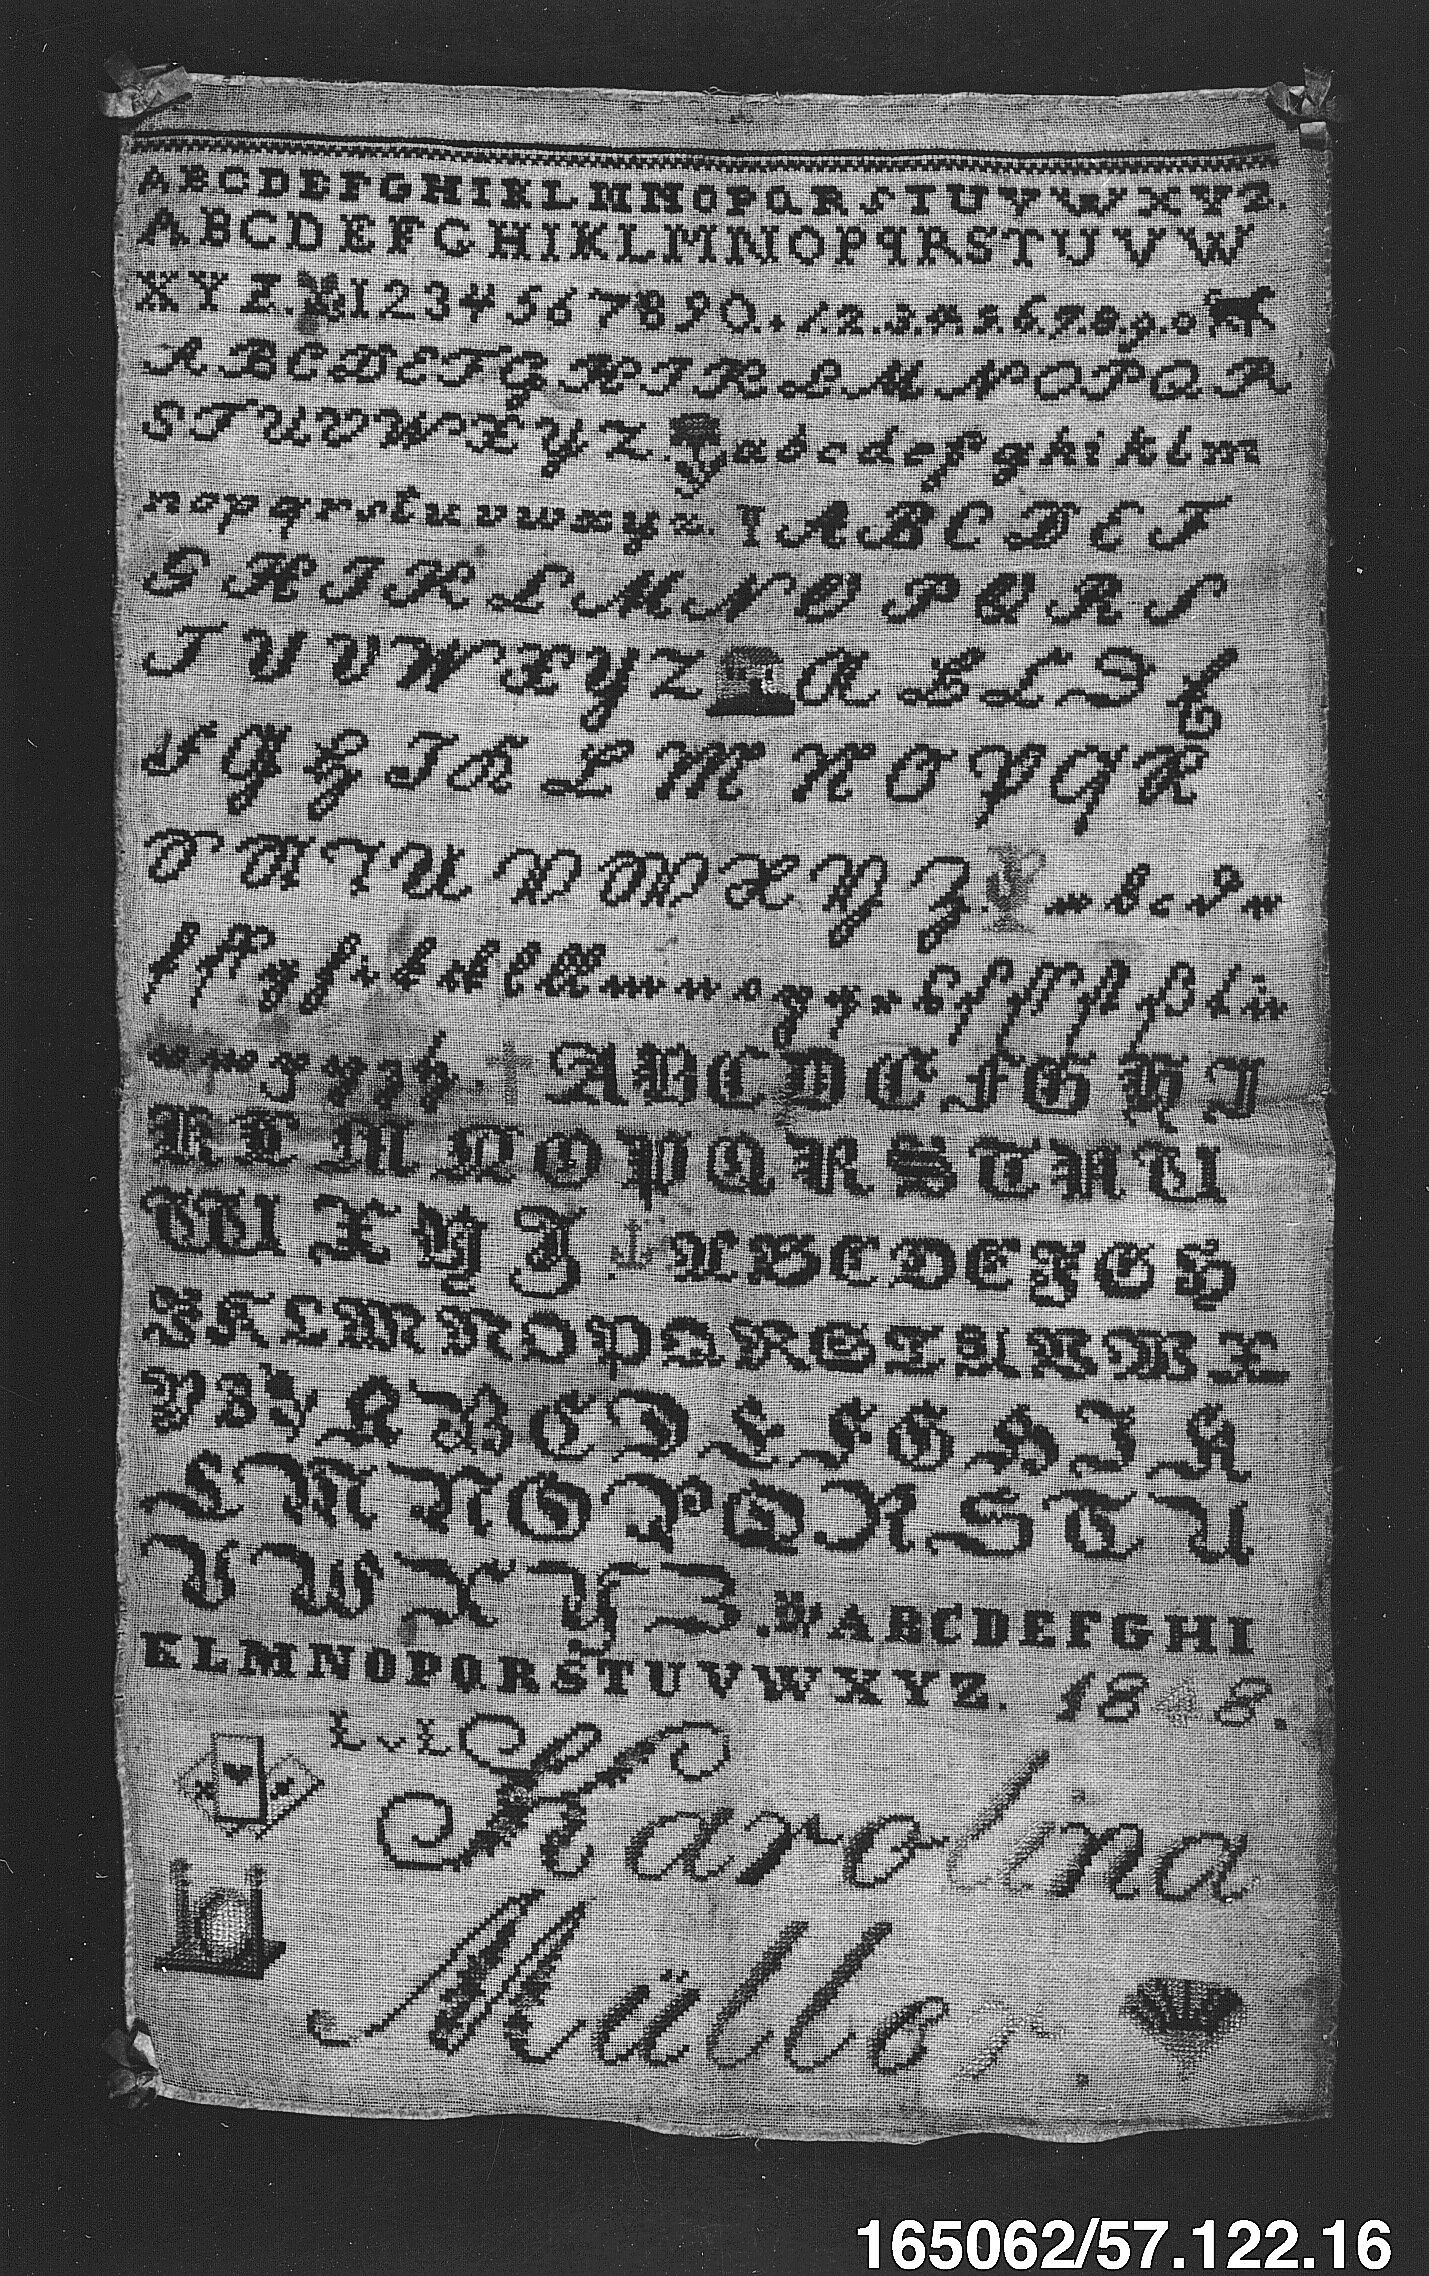 ABCDEFGHIKLMNOPQRSTUVWXYZ.
ABCDEFGHIKLMNOPqRSTUVW
XYZ. 1234567890.+1.2.3.4.5.6.7.8.9.0
ABCDEFGHIKLMNOPQR
STUVWXYZ. abcdefghiklm
nopqrstuvwxyz. ABCDEF
GHIKLMNOPQRS
TUVWXYZ ABCDE
FGHIKLMNOPQR
STUVWXYZ. abcde
ABCDEFGHI
KLMNOPQRSTU
WXYZ. ABCDEFGH
IKLMNOPQRSTUVWX
YZ ABCDEFGHIK
LMNOPQRSTU
VWXYZ. ABCDEFGHI
KLMNOPQRSTUVWXYZ. 1848.
LvL
Karolina
Müller.
165062/57.122.16